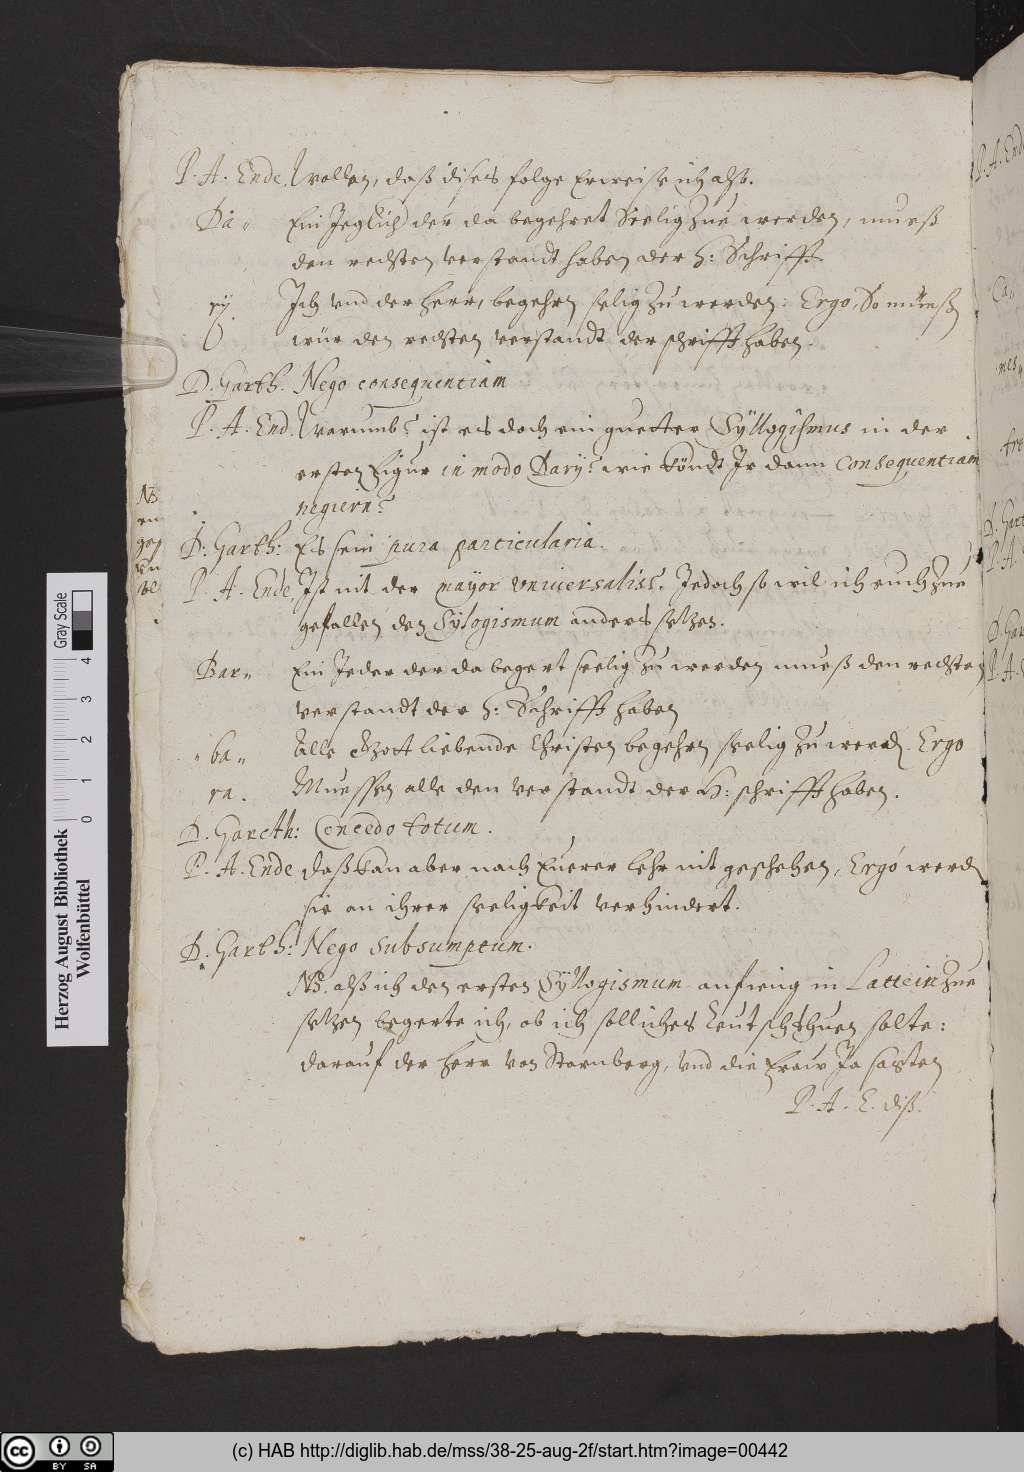 P. A. Ende. Wollan, daß dises folge Erweise ich alß.
Da„ Ein Jeglich der da begehret Seelig Zue werden, mueß
den rechten verstandt haben der H: Schrifft
rÿ. Jch vnd der Herr, begehrn selig Zu werden: Ergo, So müeßen
wür den rechten verstandt der schrifft haben.
D. Garth. Nego consequentiam
P. A. End. Warumb? ist es doch ein guetter Sÿllogismus in der
ersten Figur in modo Darÿ? wie köndt Jr dann Consequentiam
negiern?
D: Garth: Es sein pura particularia.
P. A. Ende Jst nit der mayor vniuersalis?. Jedoch so wil ich euch Zue
gefallen den Sÿlogismum anders setzen.
Bar„ Ein Jeder der da begert seelig Zu werden mueß den rechten
verstandt der H: Schrifft haben
„ba„ Alle Gott liebende Christen begehrn seelig Zu werdn. Ergo
ra. Muessen alle den verstandt der H: schrifft haben.
D. Gareth: Concedo totum.
P. A. Ende daß kan aber nach Euerer lehr nit geschehen, Ergo werdn
sie an ihrer seeligkeit verhindert.
D. Garth: Nego Subsumptum.
NB. alß ich den ersten Sÿllogismum anfieng in Lattein Zue
setzen begerte ich, ob ich solliches teutsch thuen solte:
darauf der Herr von Starnberg, vnd die Fraw Ja sagten
P. A. E. diß.
NB
en
P. A. Ende
Ca„
mes„
fre
D. Gart
P. A.
D. Gar
P. A.
Herzog August Bibliothek
Wolfenbüttel
0 1 2 3 4
Gray Scale
cc BY SA
(c) HAB http://diglib.hab.de/mss/38-25-aug-2f/start.htm?image=00442